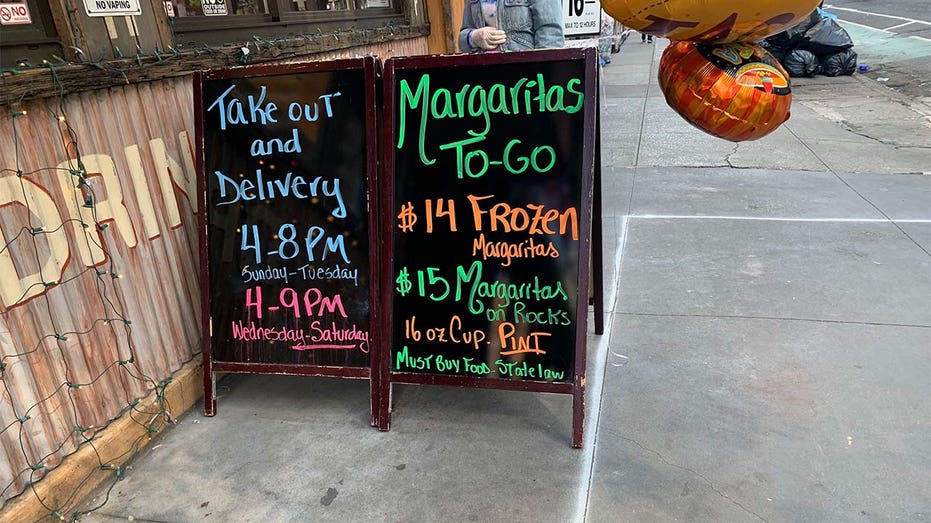 NO
NO VAPING
NO
OUTSIDE
16
MAX TO 12 HOURS
TAC
DRIN
Take out
and
Delivery
4-8 PM
Sunday-Tuesday
4-9 PM
Wednesday-Saturday
Margaritas
To-Go
$14 Frozen
Margaritas
$15 Margaritas
on Rocks
16 oz Cup. PINT
Must Buy Food-State law